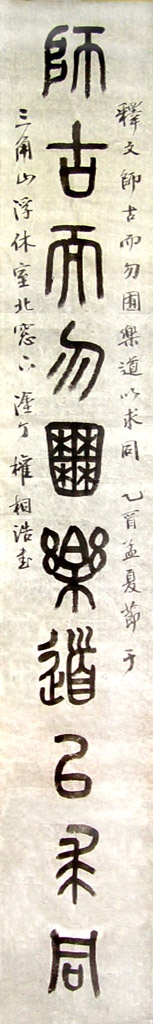 師古而勿圃樂道以求同
釋文師古而勿圃樂道以求同 乙酉孟夏節于
三角山浮休室北窓下 權相浩書